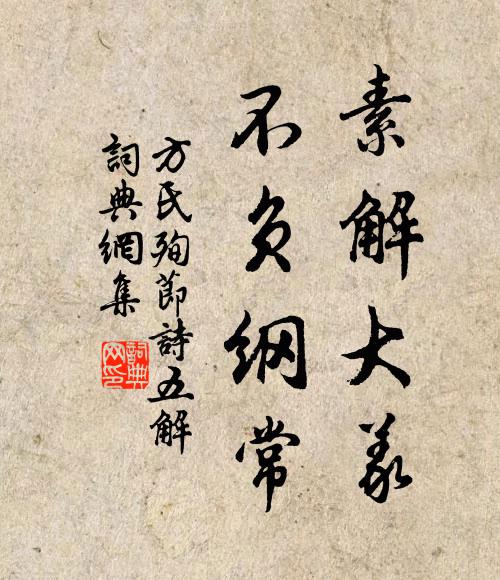 素解大義
不負綱常
方氏殉節詩五解
詞典網集
詞典
网印